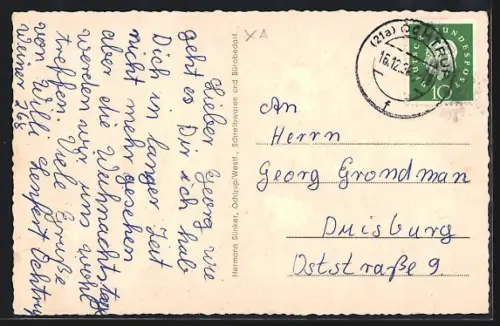 Lieber Georg wie
geht es Dir ich hab
Dich in langer Zeit
nicht mehr gesehen
aber die Weihnachtstage
werden wir uns wohl
treffen. Viele Grüße
von Willi Ochtrup
Weiner 768
Hermann Sünker, Ochtrup/Westf., Schreibwaren und Bürobedarf
XA
(21a) OCHTRUP
16.12.59
f
DEUTSCHE BUNDESPOST
10
An
Herrn
Georg Grondman
Duisburg
Oststraße 9.